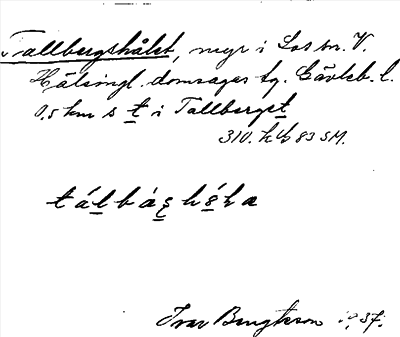 Tallbergshålet, myr i Los sn. V.
Hälsingl. domsagas tg. Gävleb. l.
0,5 km s t i Tallberget
310. kb 83 SM.
tálbáɀhóla
Ivar Bengtsson 1937.